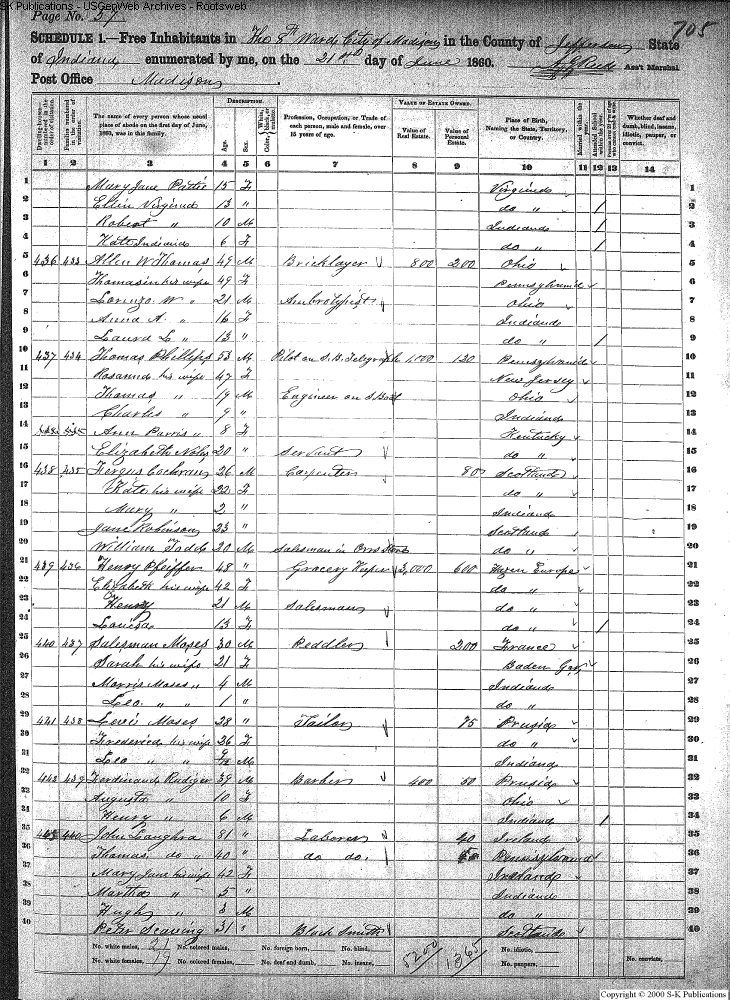 S-K Publications - USGenWeb Archives - Rootsweb
Page No. 57
705
SCHEDULE 1.—Free Inhabitants in The 8th Ward City of Madison in the County of Jefferson State
of Indiana enumerated by me, on the 21st day of June 1860. Ass't Marshal
Post Office Madison.
Dwelling-houses—numbered in the order of visitation.
Families numbered in the order of visitation.
The name of every person whose usual place of abode on the first day of June, 1860, was in this family.
DESCRIPTION.
Age.
Sex.
Color, White, black, or mulatto.
Profession, Occupation, or Trade of each person, male and female, over 15 years of age.
VALUE OF ESTATE OWNED.
Value of Real Estate.
Value of Personal Estate.
Place of Birth, Naming the State, Territory, or Country.
Married within the year.
Attended School within the year.
Whether deaf and dumb, blind, insane, idiotic, pauper, or convict.
1 2 3 4 5 6 7 8 9 10 11 12 13 14
1 Mary Jane 15 F Virginia 1
2 Ellen Virginia 13 " do " / 2
3 Robert " 10 M Indiana / 3
4 Kate Indiana 6 F do " / 4
5 436 433 Allen W Thomas 49 M Bricklayer 800 200 Ohio 5
6 Thomasin his wife 49 F Pennsylvania 6
7 Lorenzo W " 21 M Ambrotypist Ohio 7
8 Anna A. " 16 F Indiana 8
9 Laura L " 13 " do " / 9
10 437 434 Thomas Phillips 53 M Pilot on S.B. Telegraph 1,000 120 Pennsylvania 10
11 Rosanna his wife 47 F New Jersey 11
12 Thomas " 19 M Engineer on S Boat Ohio 12
13 Charles " 9 " Indiana 13
14 Ann Parris " 8 F Kentucky 14
15 Elizabeth 20 " Servant do " 15
16 438 435 Fergus Cochran 26 M Carpenter 80 Scotland 16
17 Kate his wife 22 F do " 17
18 Mary " 2 " Indiana 18
19 Jane Robinson 23 " Scotland 19
20 William Todd 20 M Salesman in Store do " 20
21 439 436 Henry Pfeiffer 48 " Grocery Keeper 3,000 600 Europe 21
22 Elizabeth his wife 42 F do " 22
23 Henry 21 M Salesman do " 23
24 Louisa 13 F do " / 24
25 440 437 Salesman Moses 30 M Peddler 200 France 25
26 Sarah his wife 21 F Baden Ger 26
27 Morris Moses " 4 M Indiana 27
28 Leo. " " 1 " do " 28
29 441 438 Levi Moses 28 " Tailor 75 Prusia 29
30 Frederica his wife 26 F do " 30
31 Leo " " M Indiana 31
32 442 439 Ferdinand Rudiger 39 M Barber 400 50 Prusia 32
33 Augusta " 10 F Ohio 33
34 Henry " 6 M Indiana / 34
35 443 440 John Laughra 81 " Laborer 40 Ireland 35
36 Thomas do " 40 " do do. Pennsylvania 36
37 Mary Jane his wife 42 F Ireland 37
38 Martha " 5 " Indiana 38
39 Hugh " 3 M do " 39
40 Peter 31 " Black Smith Scotland 40
No. white males, 21 No. colored males, No. foreign born, No. blind, 5200 1365 No. idiotic,
No. white females, 19 No. colored females, No. deaf and dumb, No. insane, No. paupers, No. convicts,
Copyright © 2000 S-K Publications